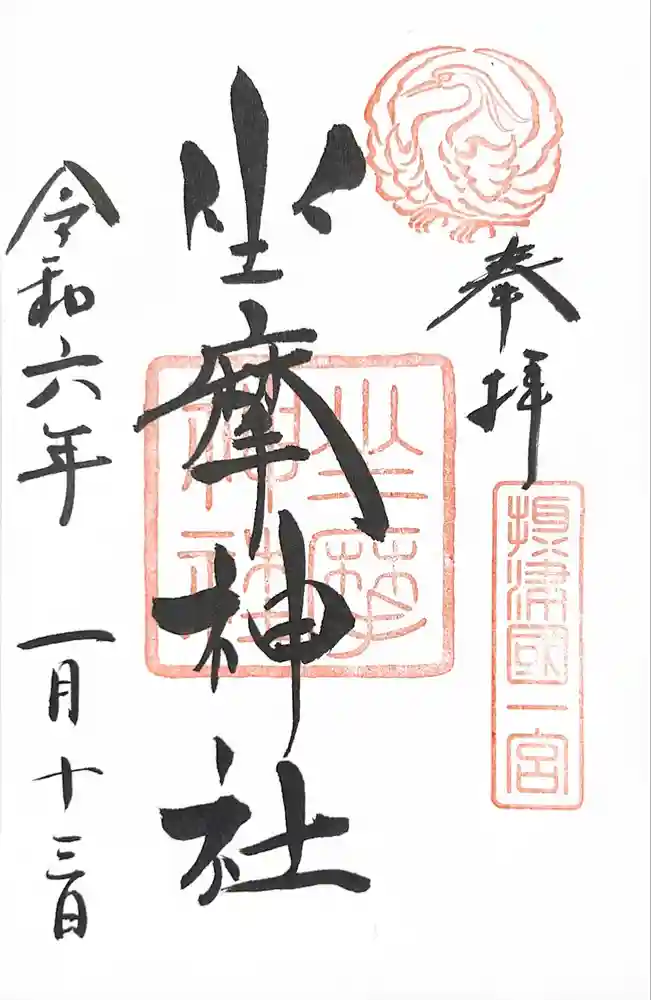 奉拝
摂津國一宮
坐摩神社
坐摩
神社
令和六年 一月十三日